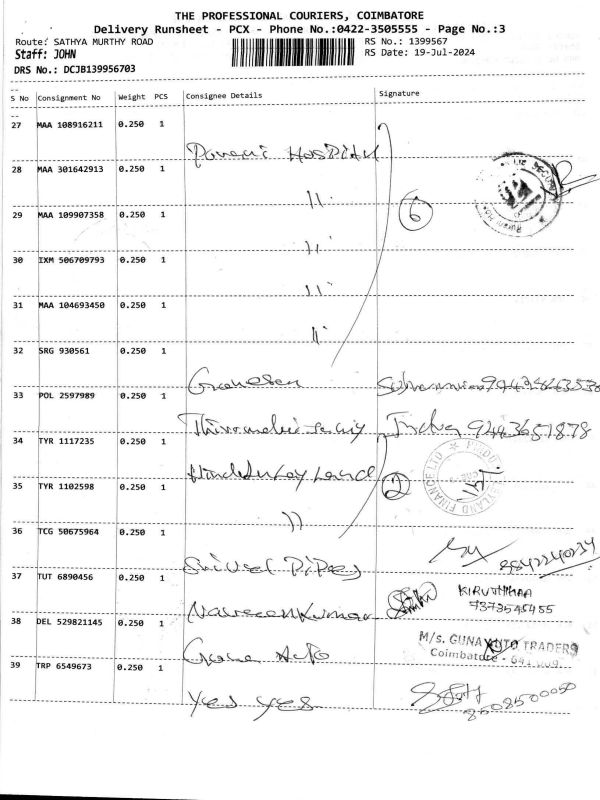 THE PROFESSIONAL COURIERS, COIMBATORE
Delivery Runsheet - PCX - Phone No.:0422-3505555 - Page No.:3
Route: SATHYA MURTHY ROAD RS No.: 1399567
Staff: JOHN RS Date: 19-Jul-2024
DRS No.: DCJB139956703
--
S No Consignment No Weight PCS Consignee Details Signature
--
27 MAA 108916211 0.250 1
Hospital
28 MAA 301642913 0.250 1
11
29 MAA 109907358 0.250 1 6
11
30 IXM 506709793 0.250 1
11
31 MAA 104693450 0.250 1
11
32 SRG 930561 0.250 1
Ganesan
33 POL 2597989 0.250 1
9443651878
34 TYR 1117235 0.250 1
35 TYR 1102598 0.250 1 2
11
36 TCG 50675964 0.250 1
Pipes 9842240234
37 TUT 6890456 0.250 1
KIRUTHIKAA
Naveenkumar 7373545455
38 DEL 529821145 0.250 1
M/s. GUNA AUTO TRADERS
Guna Auto Coimbatore
39 TRP 6549673 0.250 1
Yes Yes 8508500050